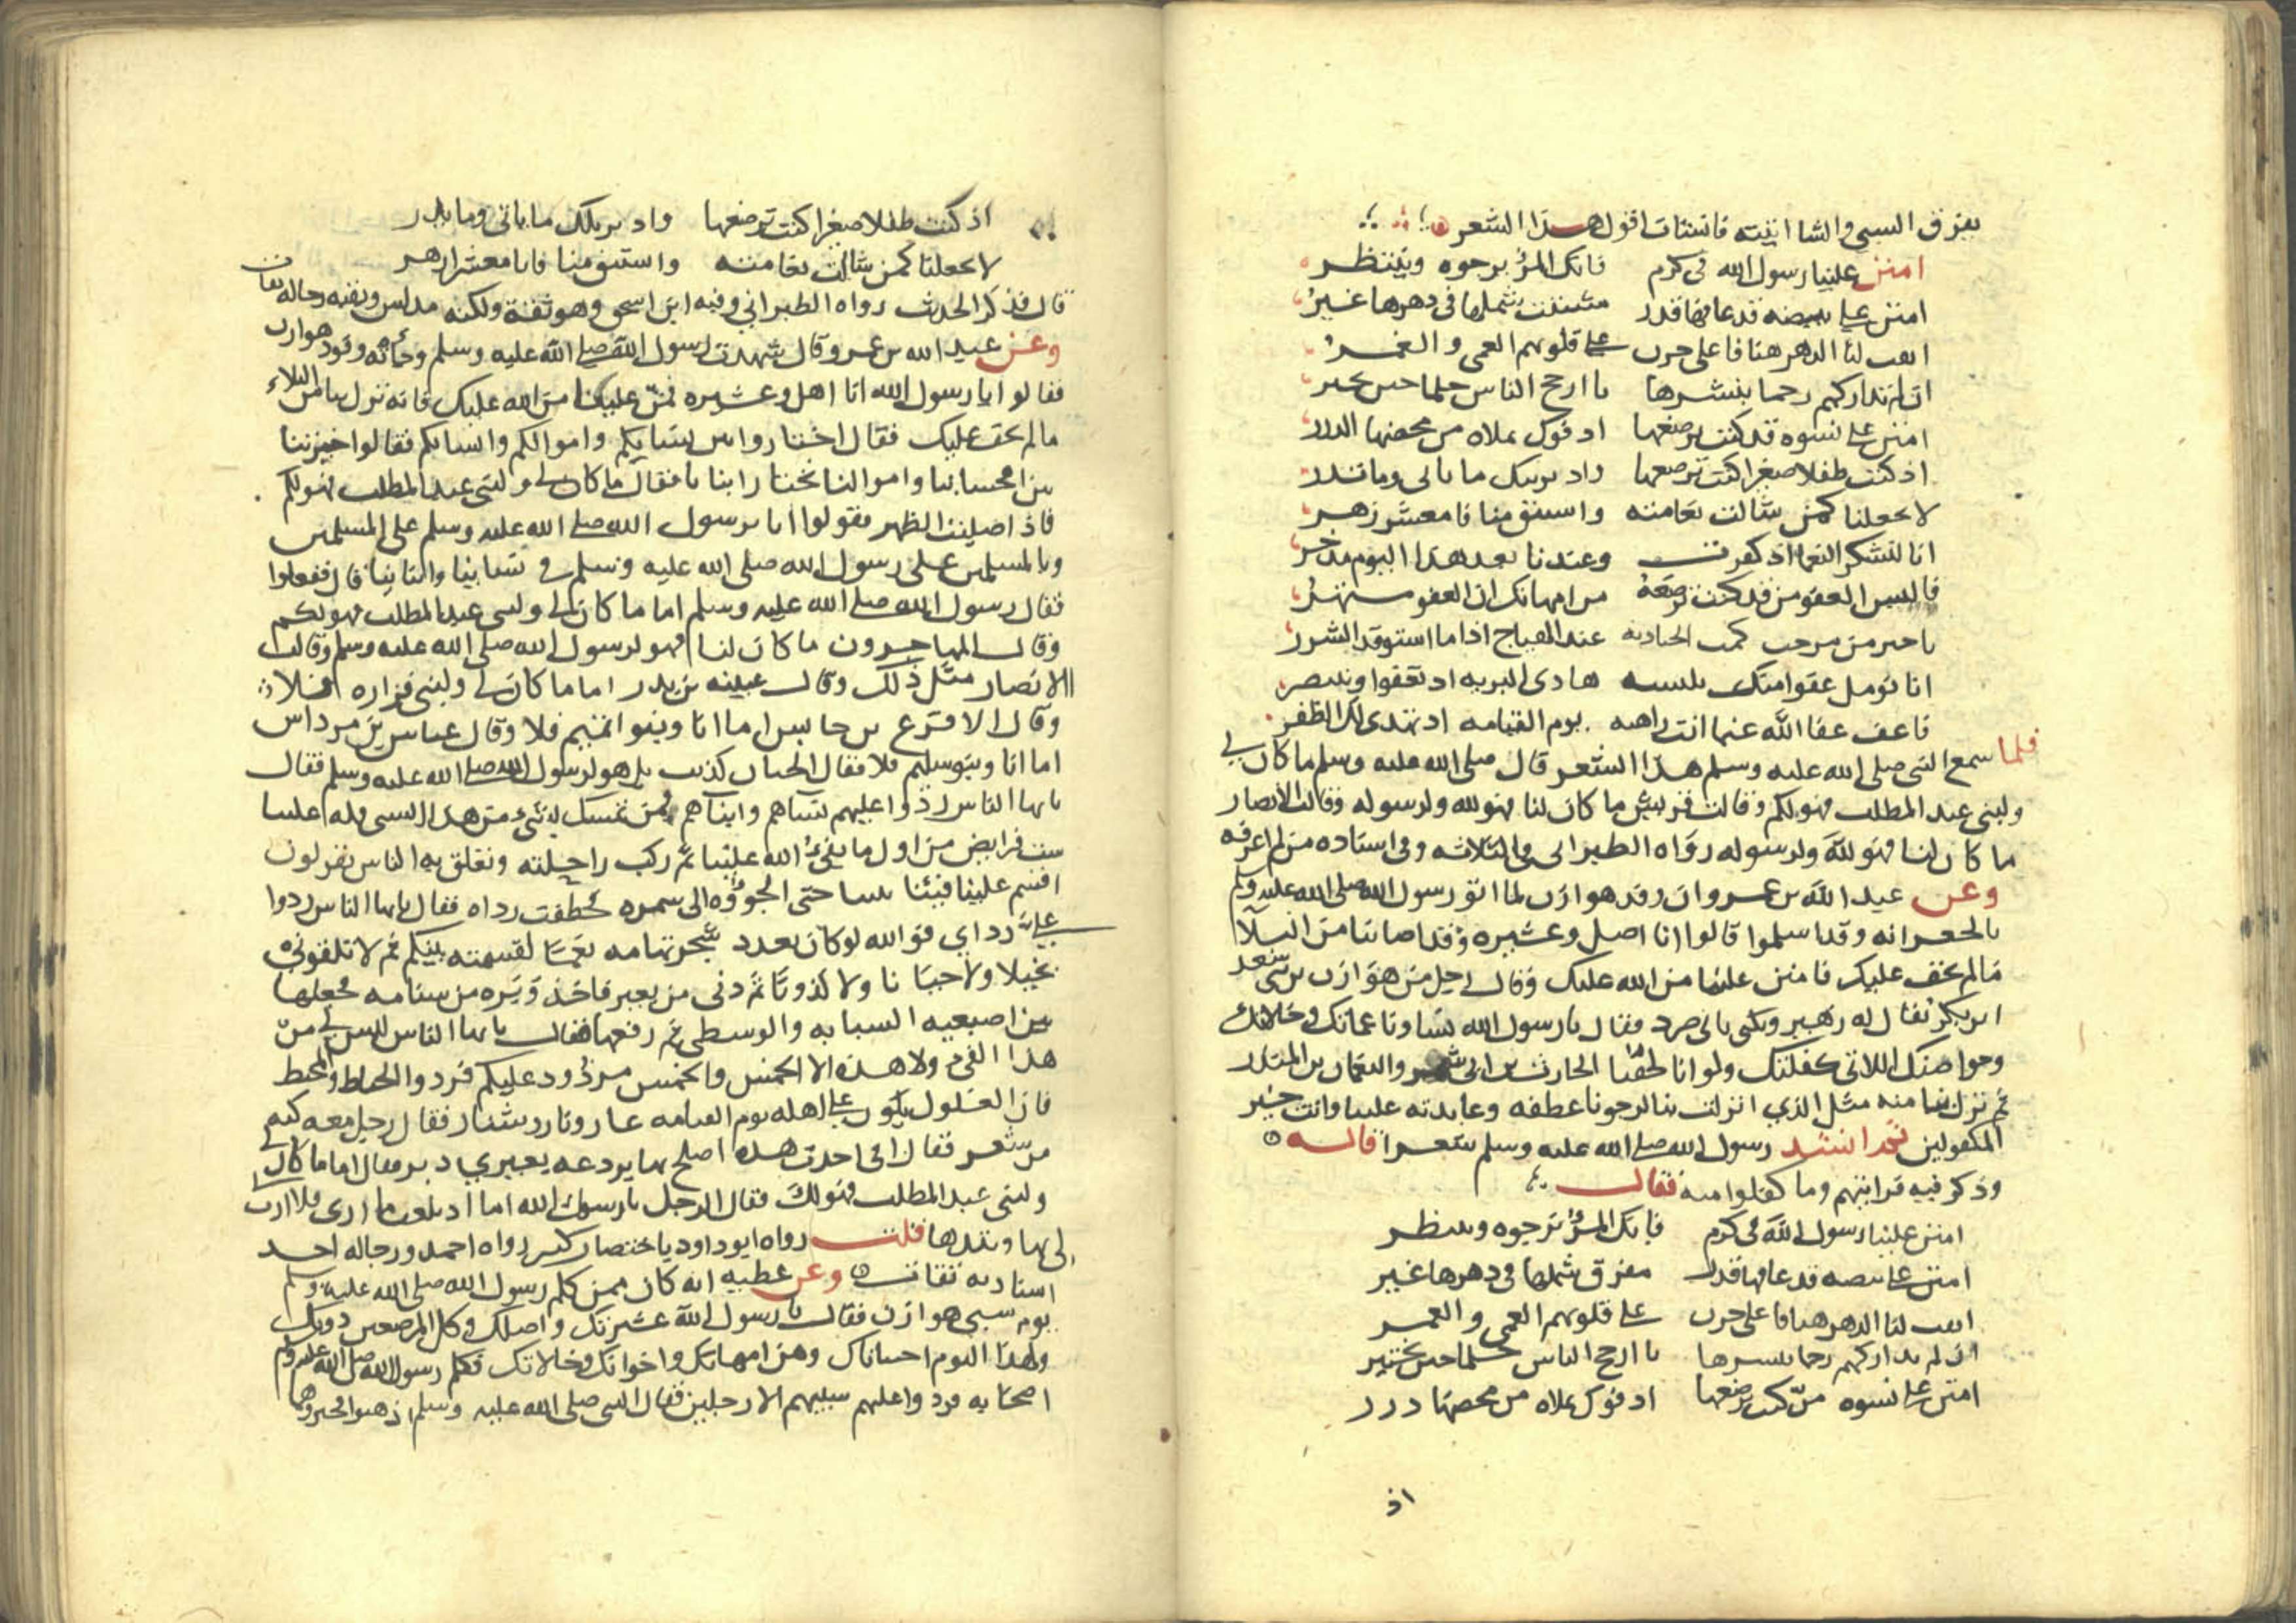 يفرق السبى والشا اتيته فانشات اقول هذا الشعر
امنن علينا رسول الله فى كرم فانك المرؤ نرجوه وننتظر
امنن على بيضه قد عاقها قدر مشتت شملها فى دهرها غير
ابقت لنا الدهر هتافا على حزن على قلوبهم الغمى والغمر
ان لم تداركهم رحما ينشرها يا ارجح الناس حلما حين يختبر
امنن على نسوه قد كنت ترضعها اذ فوك يملاه من محضها الدرر
اذ كنت طفلا صغيرا كنت ترضعها واذ يريبك ما ياتى وما تذر
لا تجعلنا كمن شالت نعامته واستبق منا فانا معشر زهر
انا لنشكر النعما اذ كفرت وعندنا بعد هذا اليوم مدخر
فالبس العفو من قد كنت ترضعه من امهاتك ان العفو مشتهر
يا خير من مرحت كمت الجياد به عند الهياج اذا ما استوقد الشرر
انا نومل عفوا منك نلبسه هادى البريه اذ تعفوا وتنتصر
فاعف عفا الله عنما انت راهبه يوم القيامه اذ تهدى لك الظفر
فلما سمع النبى صلى الله عليه وسلم هذا الشعر قال صلى الله عليه وسلم ما كان لى
ولبنى عبد المطلب فهو لكم وقالت قريش ما كان لنا فهو لله ولرسوله وقالت الانصار
ما كان لنا فهو لله ولرسوله رواه الطبرانى فى الثلاثه وفى اسناده من لم اعرفه
وعن عبد الله بن عمرو ان وفد هوازن لما اتو رسول الله صلى الله عليه وسلم
بالجعرانه وقد اسلموا قالوا انا اصل وعشيره وقد اصابنا من البلا
ما لم يخف عليك فامنن علينا من الله عليك وقال رجل من هوازن من بنى سعد
ابن بكر يقال له زهير ويكنى بابى صرد فقال يا رسول الله نساونا عماتك وخالاتك
وحواضنك اللاتى كفلنك ولو انا لحقنا الحارث بن ابى شمر والنعمان بن المنذر
ثم نزل بنا منه مثل الذي انزلت بنا لرجونا عطفه وعايدته علينا وانت خير
المكفولين ثم انشد رسول الله صلى الله عليه وسلم شعرا قاله
وذكر فيه قرابتهم وما كفلوا منه فقال
امنن علينا رسول الله فى كرم فانك المرؤ نرجوه وننتظر
امنن على بيضه قد عاقها قدر مفرق شملها فى دهرها غير
ابقت لنا الدهر هتافا على حزن على قلوبهم الغمى والغمر
ان لم تداركهم رحما ينشرها يا ارجح الناس حلما حين يختبر
امنن على نسوه من كنت ترضعها اذ فوك يملاه من محضها درر
اذ
اذ كنت طفلا صغيرا كنت ترضعها واذ يريبك ما ياتى وما يذر
لا تجعلنا كمن شالت نعامته واستبق منا فانا معشر زهر
قال فذكر الحديث رواه الطبرانى وفيه ابن اسحق وهو ثقة ولكنه مدلس وبقيه رجاله ثقات
وعن عبد الله بن عمرو قال شهدت رسول الله صلى الله عليه وسلم وجأته وفود هوازن
فقالوا يا رسول الله انا اهل وعشيره فمن علينا من الله عليك فانه نزل بنا من البلاء
ما لم يخف عليك فقال اختاروا بين نسايكم واموالكم وابنايكم فقالوا خيرتنا
بين احسابنا واموالنا نختار ابنانا فقال ما كان لى ولبنى عبد المطلب فهو لكم
فاذا صليت الظهر فقولوا انا برسول الله صلى الله عليه وسلم على المسلمين
وبالمسلمين على رسول الله صلى الله عليه وسلم فى نساينا وابناينا قال ففعلوا
فقال رسول الله صلى الله عليه وسلم اما ما كان لى ولبنى عبد المطلب فهو لكم
وقال المهاجرون ما كان لنا فهو لرسول الله صلى الله عليه وسلم وقالت
الانصار مثل ذلك وقال عيينه بن بدر اما ما كان لى ولبنى فزاره فلا
وقال الاقرع بن حابس اما انا وبنوا تميم فلا وقال عباس بن مرداس
اما انا وبنو سليم فلا فقال الحيان كذبت بل هو لرسول الله صلى الله عليه وسلم فقال
يايها الناس ردوا عليهم نساهم وابناهم فمن تمسك بشئ من هذا السبى فله علينا
ست فرايض من اول ما يفئ الله علينا ثم ركب راحلته وتعلق به الناس يقولون
اقسم علينا فيئنا بيننا حتى الجوؤه الى سمره فخطفت رداه فقال يايها الناس ردوا
على رداي فوالله لو كان بعدد شجر تهامه نعما لقسمته بينكم ثم لا تلقوني
بخيلا ولا جبانا ولا كذوبا ثم دنى من بعير فاخذ وبره من سنامه فجعلها
بين اصبعيه السبابه والوسطى ثم رفعها فقال يايها الناس ليس لى من
هذا الفئ ولا هذه الا الخمس والخمس مردود عليكم فردوا الخياط والمخيط
فان الغلول يكون على اهله يوم القيامه عارا ونارا وشنار فقام رجل معه كبه
من شعر فقال انى اخذت هذه اصلح بها بردعه بعيري دبر فقال اما ما كان لى
ولبنى عبد المطلب فهو لك فقال الرجل يا رسول الله اما اذ بلغت ما ارى فلا ارب
لى بها ونبذها قلت رواه ابو داود باختصار كثير رواه احمد ورجاله احد
اسناديه ثقات وعن عطيه انه كان ممن كلم رسول الله صلى الله عليه وسلم
يوم سبى هوازن فقال يا رسول الله عشيرتك واصلك وكل المرضعين دونك
ولهذا اليوم اختباناك وهن امهاتك واخواتك وخالاتك فكلم رسول الله صلى الله عليه وسلم
اصحابه فردوا عليهم سبيهم الا رجلين فقال النبى صلى الله عليه وسلم اذهبوا فخيروهما